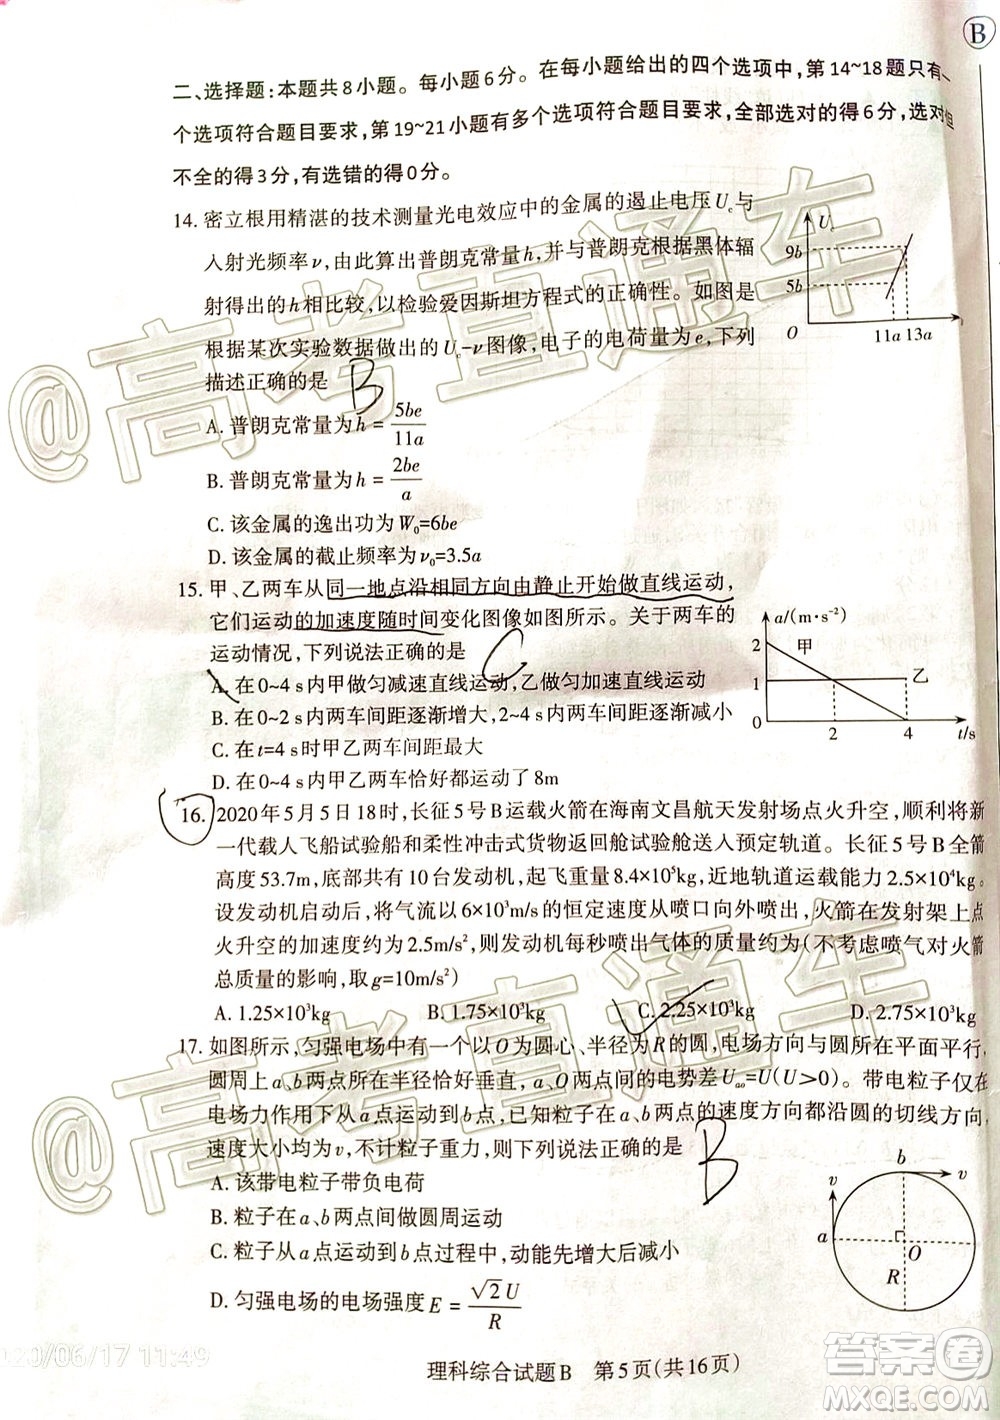 B
二、选择题:本题共8小题。每小题6分。在每小题给出的四个选项中,第14~18题只有一
个选项符合题目要求,第19~21小题有多个选项符合题目要求,全部选对的得6分,选对但
不全的得3分,有选错的得0分。
14. 密立根用精湛的技术测量光电效应中的金属的遏止电压Uc与
入射光频率ν,由此算出普朗克常量h,并与普朗克根据黑体辐
射得出的h相比较,以检验爱因斯坦方程式的正确性。如图是
根据某次实验数据做出的Uc-ν图像,电子的电荷量为e,下列
描述正确的是 B
Uc
9b
5b
O
11a 13a
A. 普朗克常量为h = 5be/11a
B. 普朗克常量为h = 2be/a
C. 该金属的逸出功为W₀=6be
D. 该金属的截止频率为ν₀=3.5a
15. 甲、乙两车从同一地点沿相同方向由静止开始做直线运动,
它们运动的加速度随时间变化图像如图所示。关于两车的
运动情况,下列说法正确的是 C
A. 在0~4 s内甲做匀减速直线运动,乙做匀加速直线运动
B. 在0~2 s内两车间距逐渐增大,2~4 s内两车间距逐渐减小
C. 在t=4 s时甲乙两车间距最大
D. 在0~4 s内甲乙两车恰好都运动了8m
a/(m·s⁻²)
2
甲
1
乙
0
2
4
t/s
16. 2020年5月5日18时,长征5号B运载火箭在海南文昌航天发射场点火升空,顺利将新
一代载人飞船试验船和柔性冲击式货物返回舱试验舱送入预定轨道。长征5号B全箭
高度53.7m,底部共有10台发动机,起飞重量8.4×10⁵kg,近地轨道运载能力2.5×10⁴kg。
设发动机启动后,将气流以6×10³m/s的恒定速度从喷口向外喷出,火箭在发射架上点
火升空的加速度约为2.5m/s²,则发动机每秒喷出气体的质量约为(不考虑喷气对火箭
总质量的影响,取g=10m/s²)
A. 1.25×10³kg B. 1.75×10³kg C. 2.25×10³kg D. 2.75×10³kg
17. 如图所示,匀强电场中有一个以O为圆心、半径为R的圆,电场方向与圆所在平面平行,
圆周上a、b两点所在半径恰好垂直,a、O两点间的电势差Uao=U(U>0)。带电粒子仅在
电场力作用下从a点运动到b点,已知粒子在a、b两点的速度方向都沿圆的切线方向,
速度大小均为v,不计粒子重力,则下列说法正确的是 B
A. 该带电粒子带负电荷
B. 粒子在a、b两点间做圆周运动
C. 粒子从a点运动到b点过程中,动能先增大后减小
D. 匀强电场的电场强度E = √2U/R
b
v
v
a
O
R
理科综合试题B 第5页(共16页)
20/06/17 11:49
@高考直通车
@高考直通车
答案圈
MXQE.COM